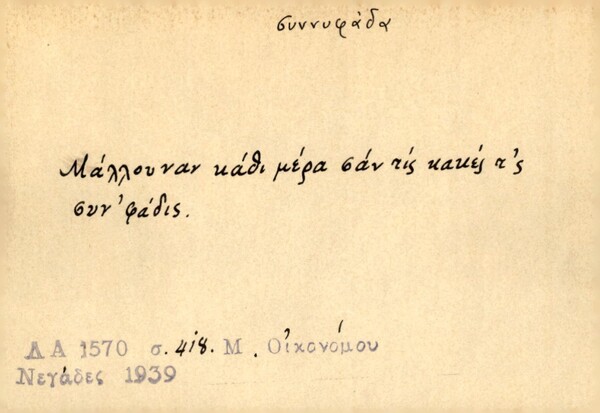 συννυφάδα
Μάλλουναν κάθι μέρα σάν τίς κακές τ'ς
συν'φάδις.
ΔΑ 1570 σ. 418. Μ. Οἰκονόμου
Νεγάδες 1939